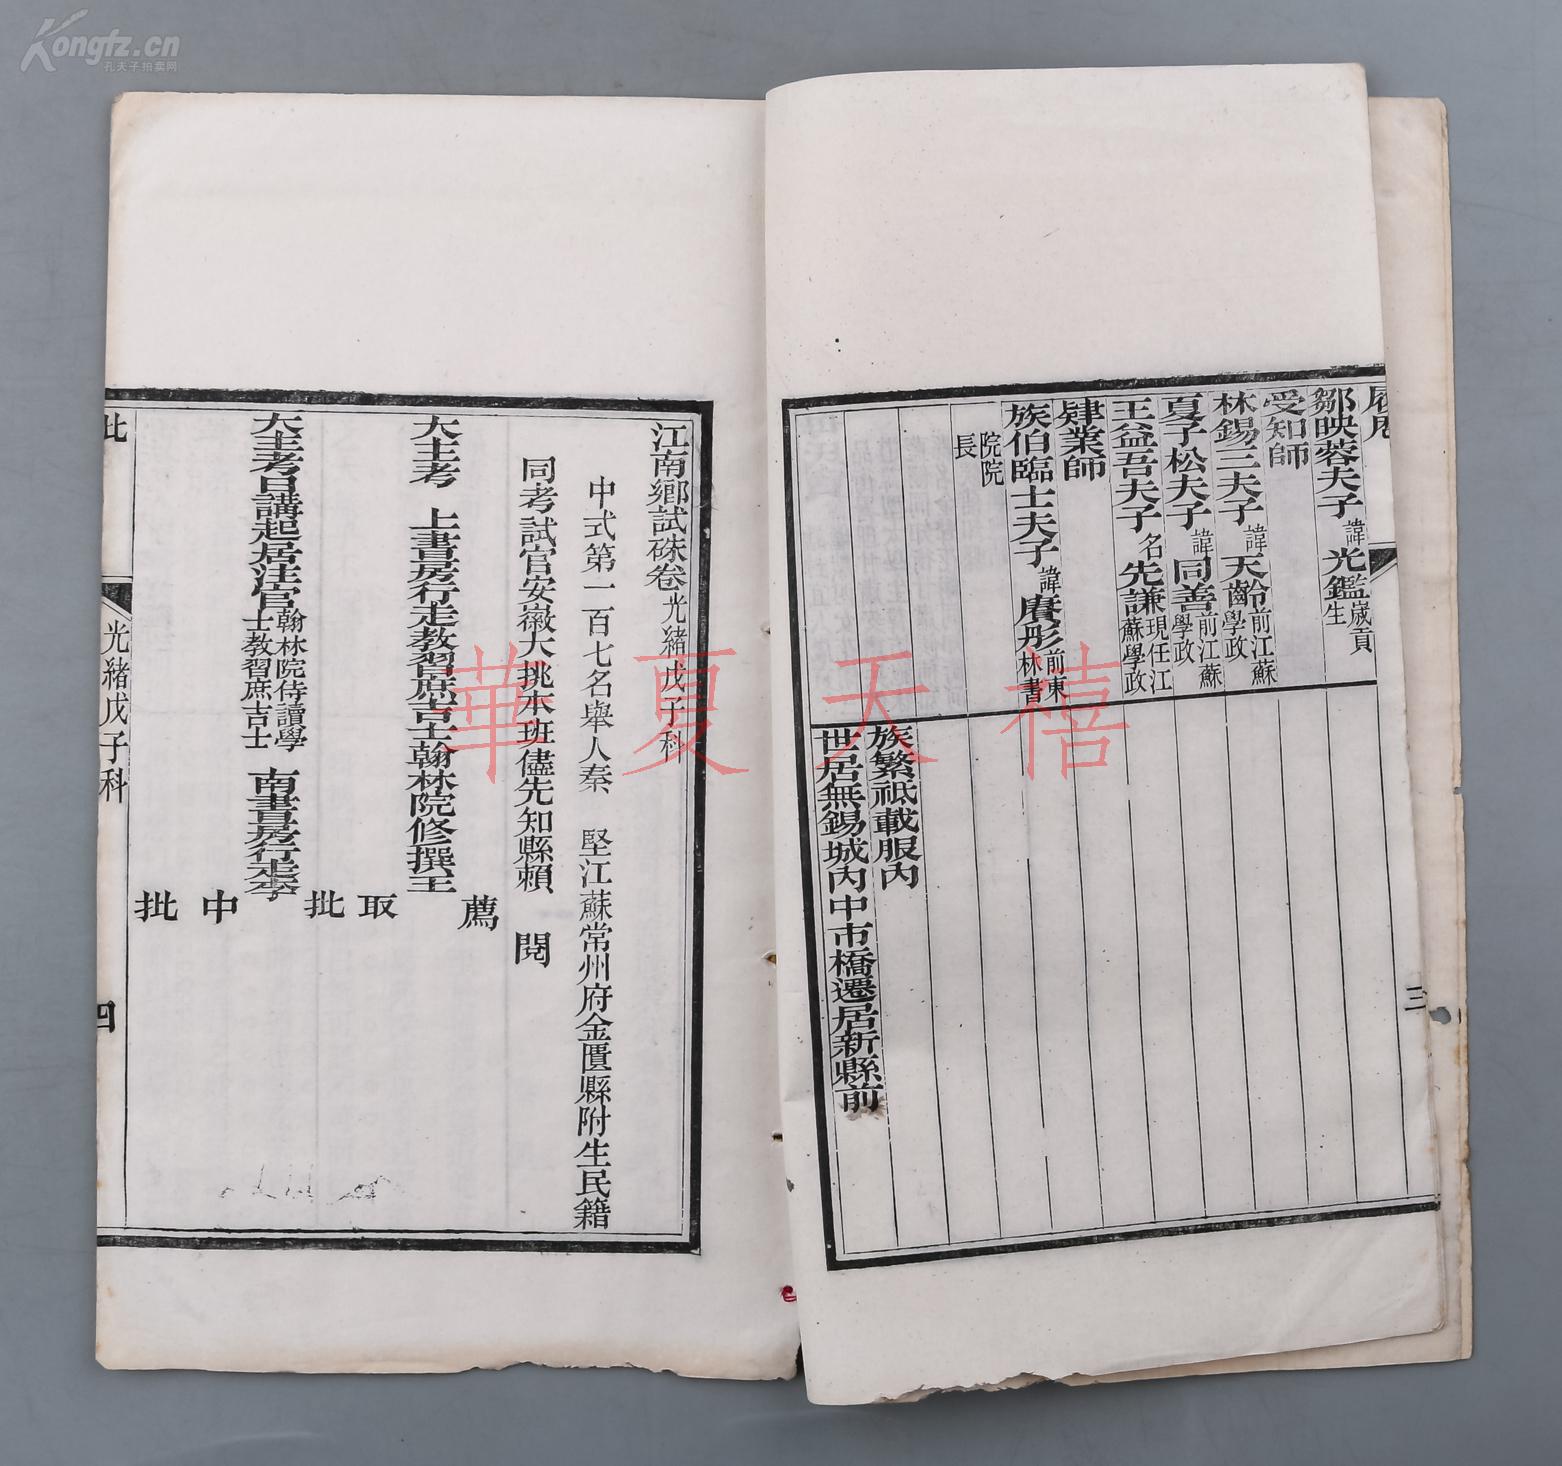 Kongfz.cn
孔夫子拍卖网
履歷
三
鄒映蓉夫子諱光鑑歲貢生
受知師
林錫三夫子諱天齡前江蘇學政
夏子松夫子諱同善前江蘇學政
王益吾夫子名先謙現任江蘇學政
肄業師
族伯臨士夫子諱賡彤前東林書
院院長
族繁祗載服內
世居無錫城內中市橋遷居新縣前
江南鄉試硃卷光緒戊子科
中式第一百七名舉人秦 堅江蘇常州府金匱縣附生民籍
同考試官安徽大挑本班儘先知縣賴 閱
薦
大主考 上書房行走教習庶吉士翰林院修撰王
取
批
大主考日講起居注官翰林院侍讀學士教習庶吉士 南書房行走李
中
批
批
光緒戊子科
四
華夏天禧